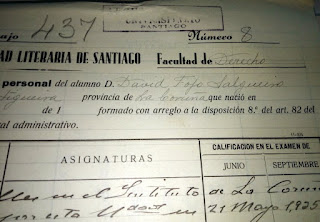 ajo 437
SANTIAGO
Número 8
AD LITERARIA DE SANTIAGO Facultad de Derecho
personal del alumno D. David Fojo Salgueiro
Figueroa provincia de La Coruña que nació en
de 1 formado con arreglo a la disposición 8.ª del art. 82 del
al administrativo.
ASIGNATURAS
CALIFICACIÓN EN EL EXAMEN DE
JUNIO SEPTIEMBRE
en el Instituto de La Coru
21 Mayo 1925